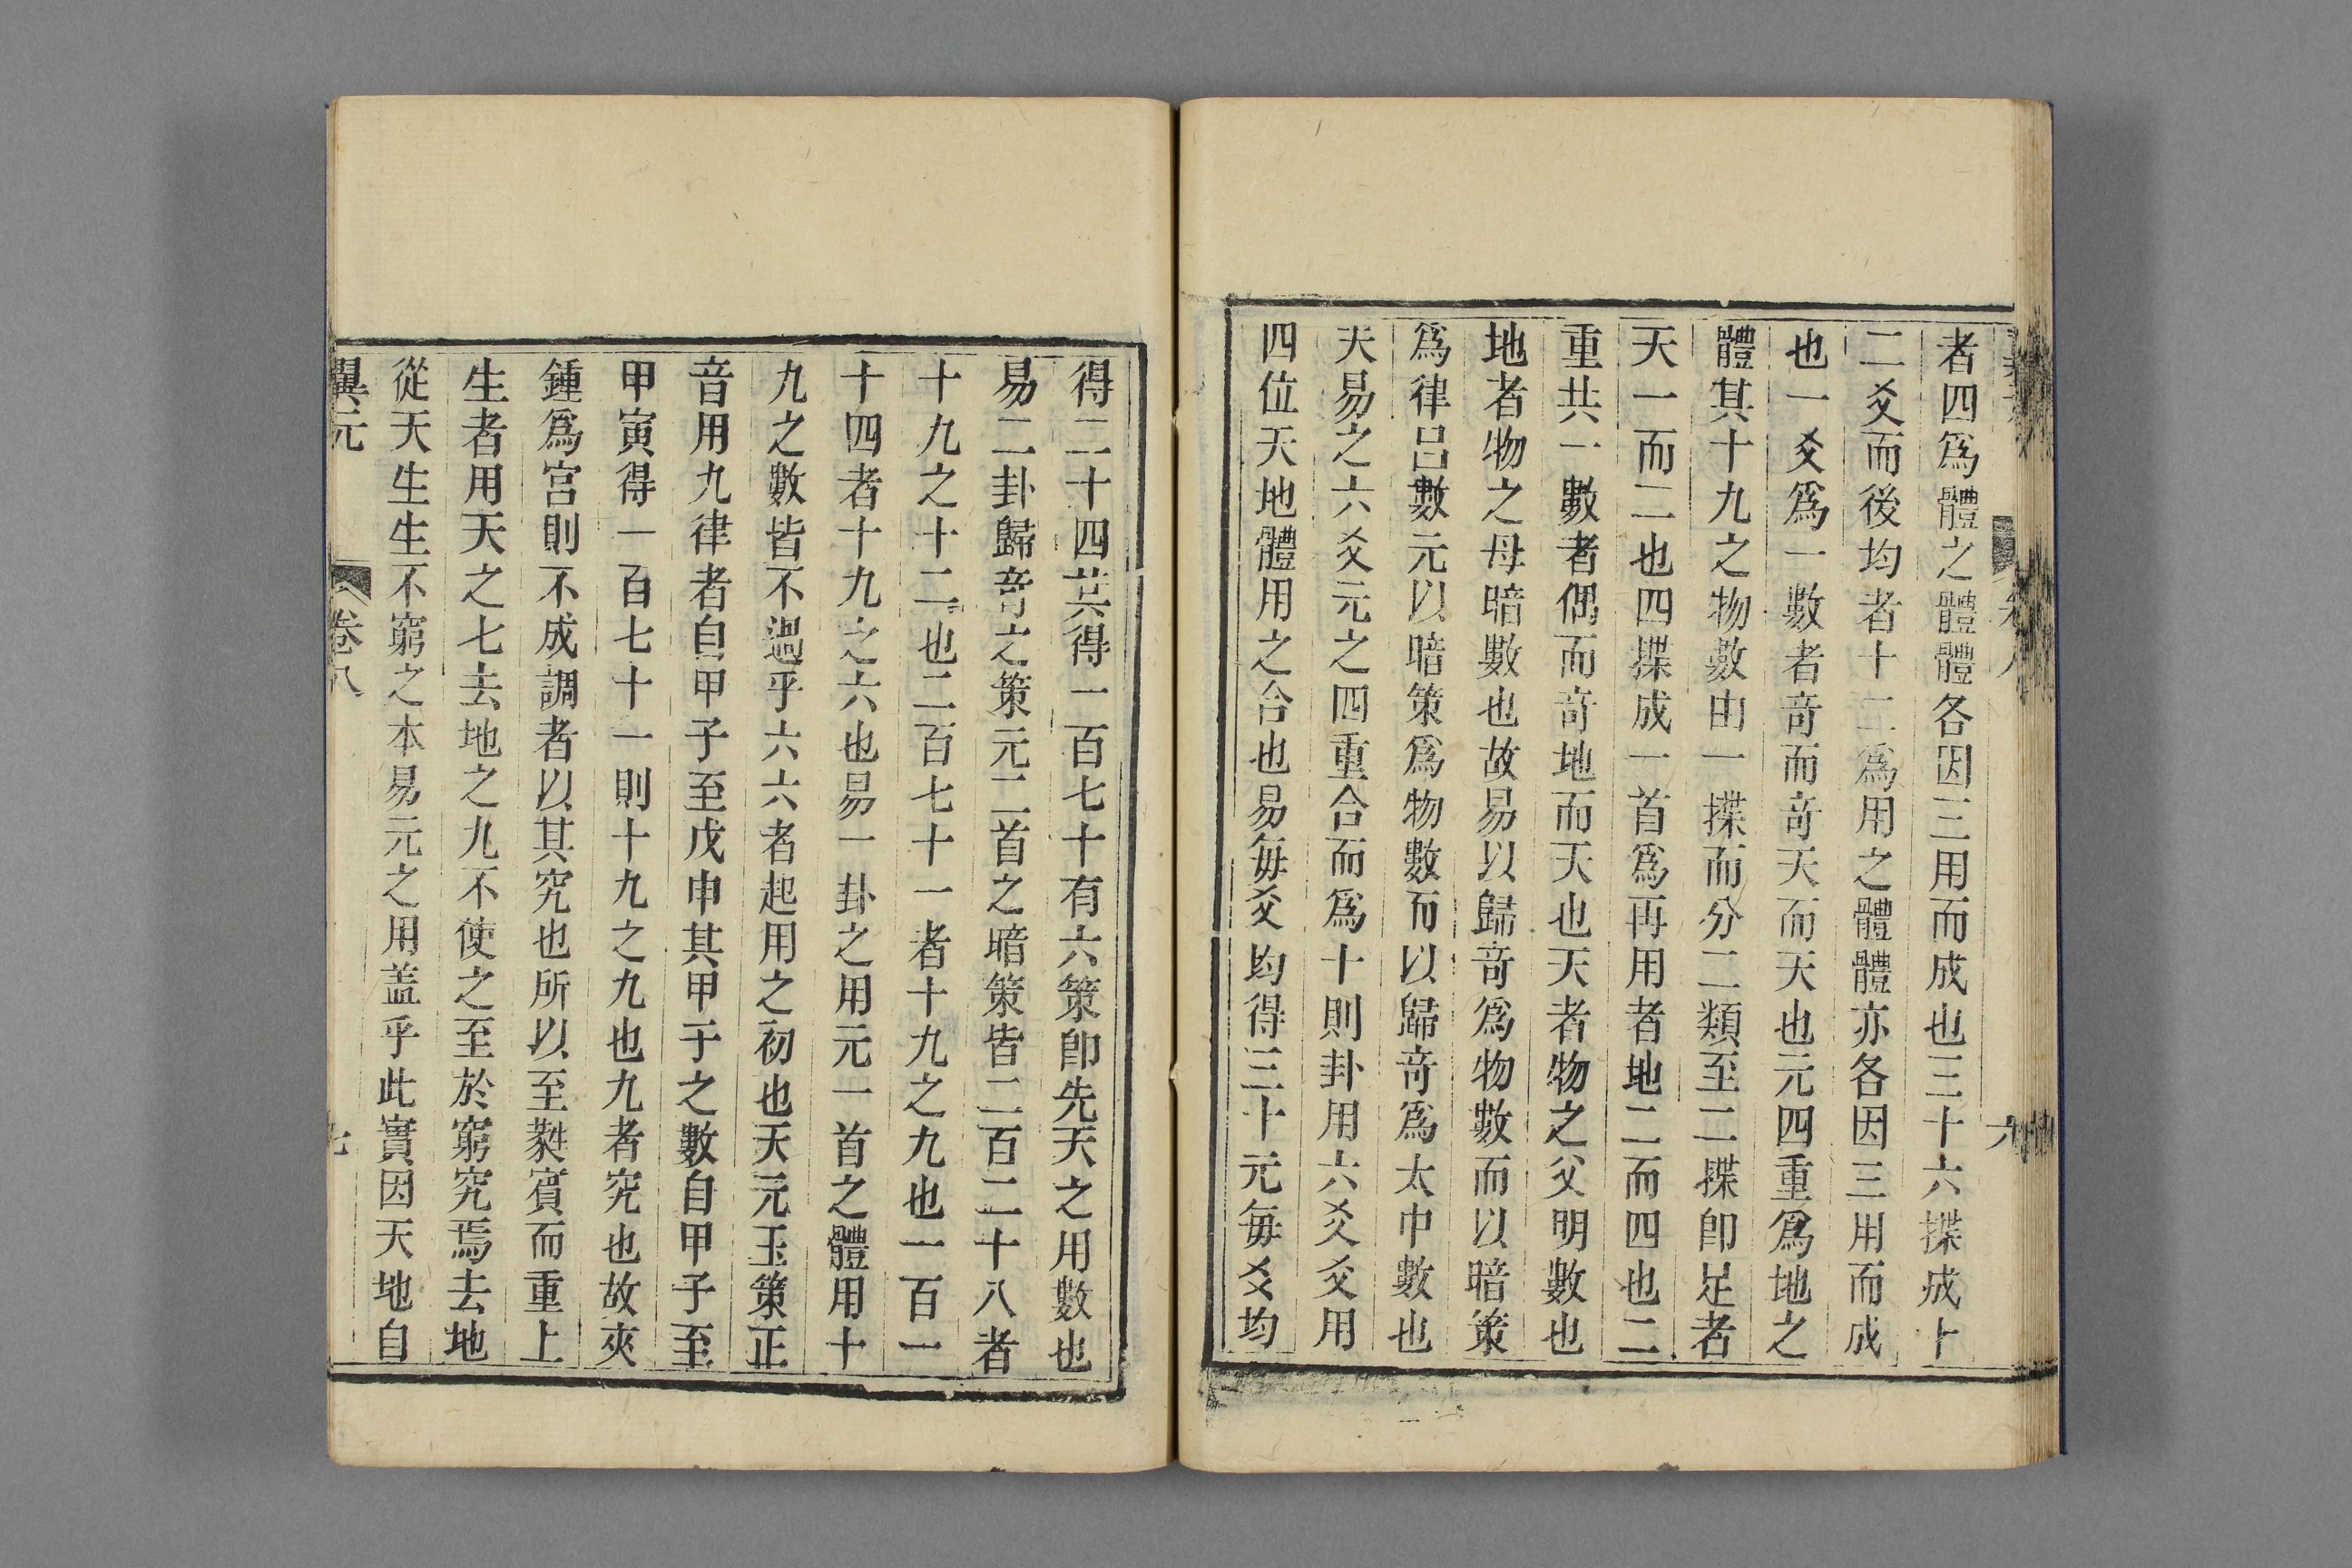 者四爲體之體體各因三用而成也三十六揲成十
二爻而後均者十二爲用之體體亦各因三用而成
也一爻爲一數者奇而奇天而天也元四重爲地之
體其十九之物數由一揲而分二類至二揲卽足者
天一而二也四揲成一首爲再用者地二而四也二
重共一數者偶而奇地而天也天者物之父明數也
地者物之母暗數也故易以歸奇爲物數而以暗策
爲律呂數元以暗策爲物數而以歸奇爲太中數也
夫易之六爻元之四重合而爲十則卦用六爻爻用
四位天地體用之合也易每爻均得三十元每爻均
得二十四共得一百七十有六策卽先天之用數也
易二卦歸奇之策元二首之暗策皆二百二十八者
十九之十二也二百七十一者十九之九也一百一
十四者十九之六也易一卦之用元一首之體用十
九之數皆不過乎六六者起用之初也天元玉策正
音用九律者自甲子至戊申其甲子之數自甲子至
甲寅得一百七十一則十九之九也九者究也故夾
鍾爲宮則不成調者以其究也所以至蕤賓而重上
生者用天之七去地之九不使之至於窮究焉去地
從天生生不窮之本易元之用蓋乎此實因天地自
翼元
卷八
七
六